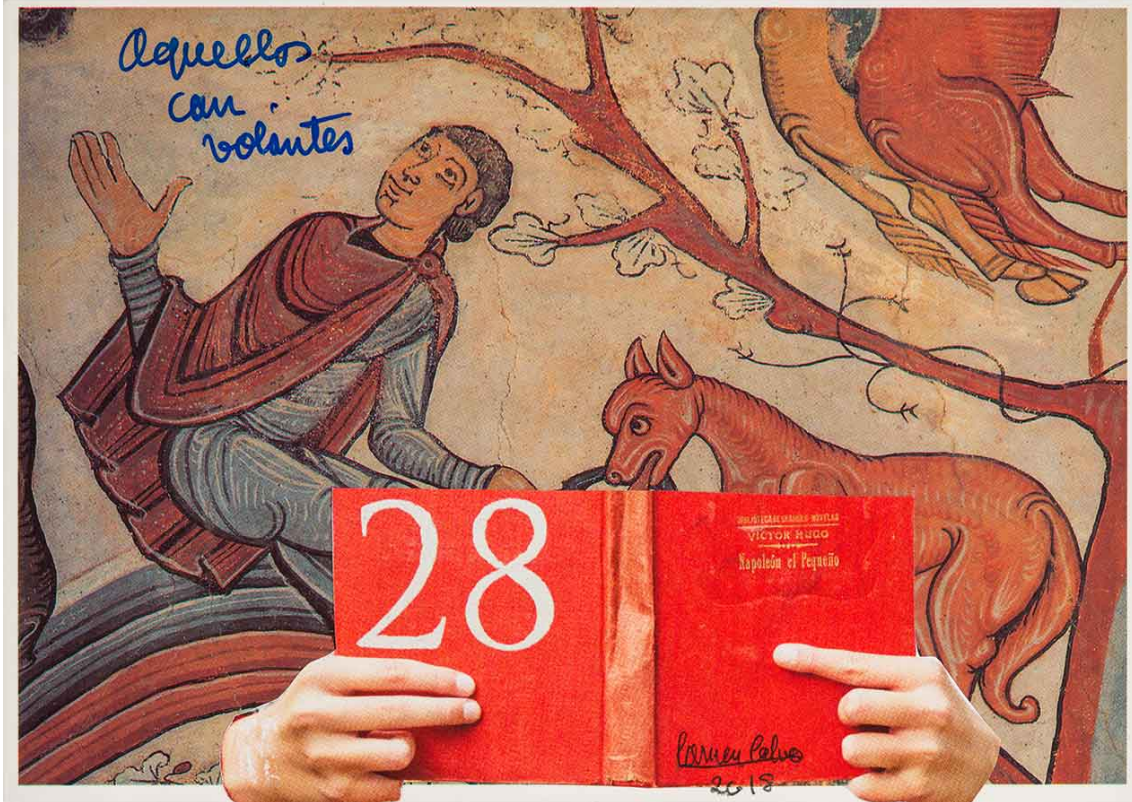 Aquellos
con
volantes
28
BIBLIOTECA DE GRANDES NOVELAS
VICTOR HUGO
Napoleón el Pequeño
Carmen Calvo
2018